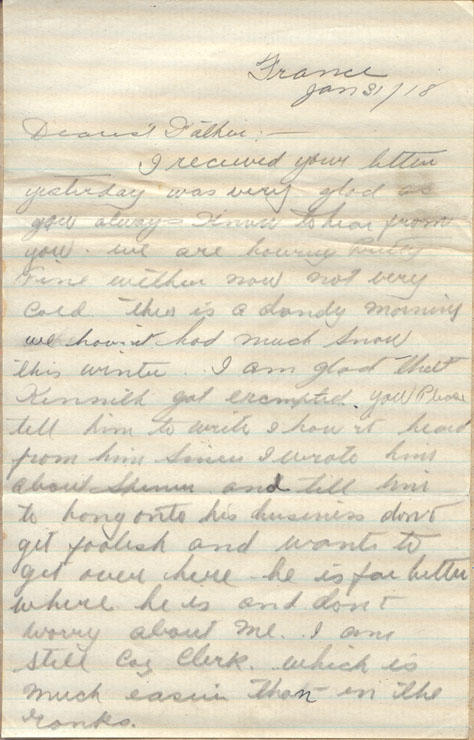 France
Jan 31/18
Dearest Father:—
I received your letter
yesterday was very glad as
you always know to hear from
you. we are having Pretty
Fine wether now not very
cold this is a dandy morning
we havint had much Snow
this winter. I am glad that
Kennith got exempted. you Please
tell him to write I hav'nt heard
from him Since I wrote him
about and tell him
to hang onto his business dont
get foolish and want to
get over here he is far better
where he is and dont
worry about me. I am
still Coy Clerk. which is
much easier than in the
ranks.